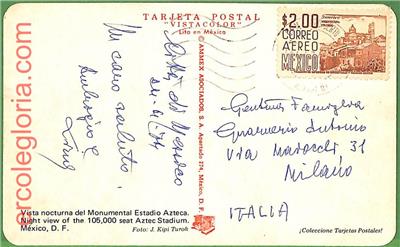 TARJETA POSTAL
"VISTACOLOR"
Lito en México
$2.00
CORREO
AEREO
MEXICO
Città del Messico
Un caro saluto.
© AMMEX ASOCIADOS, S. A. Apartado 274, México, D. F.
Gentma Famiglia
Antonio
Via 31
Milano
ITALIA
Vista nocturna del Monumental Estadio Azteca.
Night view of the 105,000 seat Aztec Stadium.
México, D. F.
Foto: J. Kipi Turok
¡Coleccione Tarjetas Postales!
ercolegloria.com